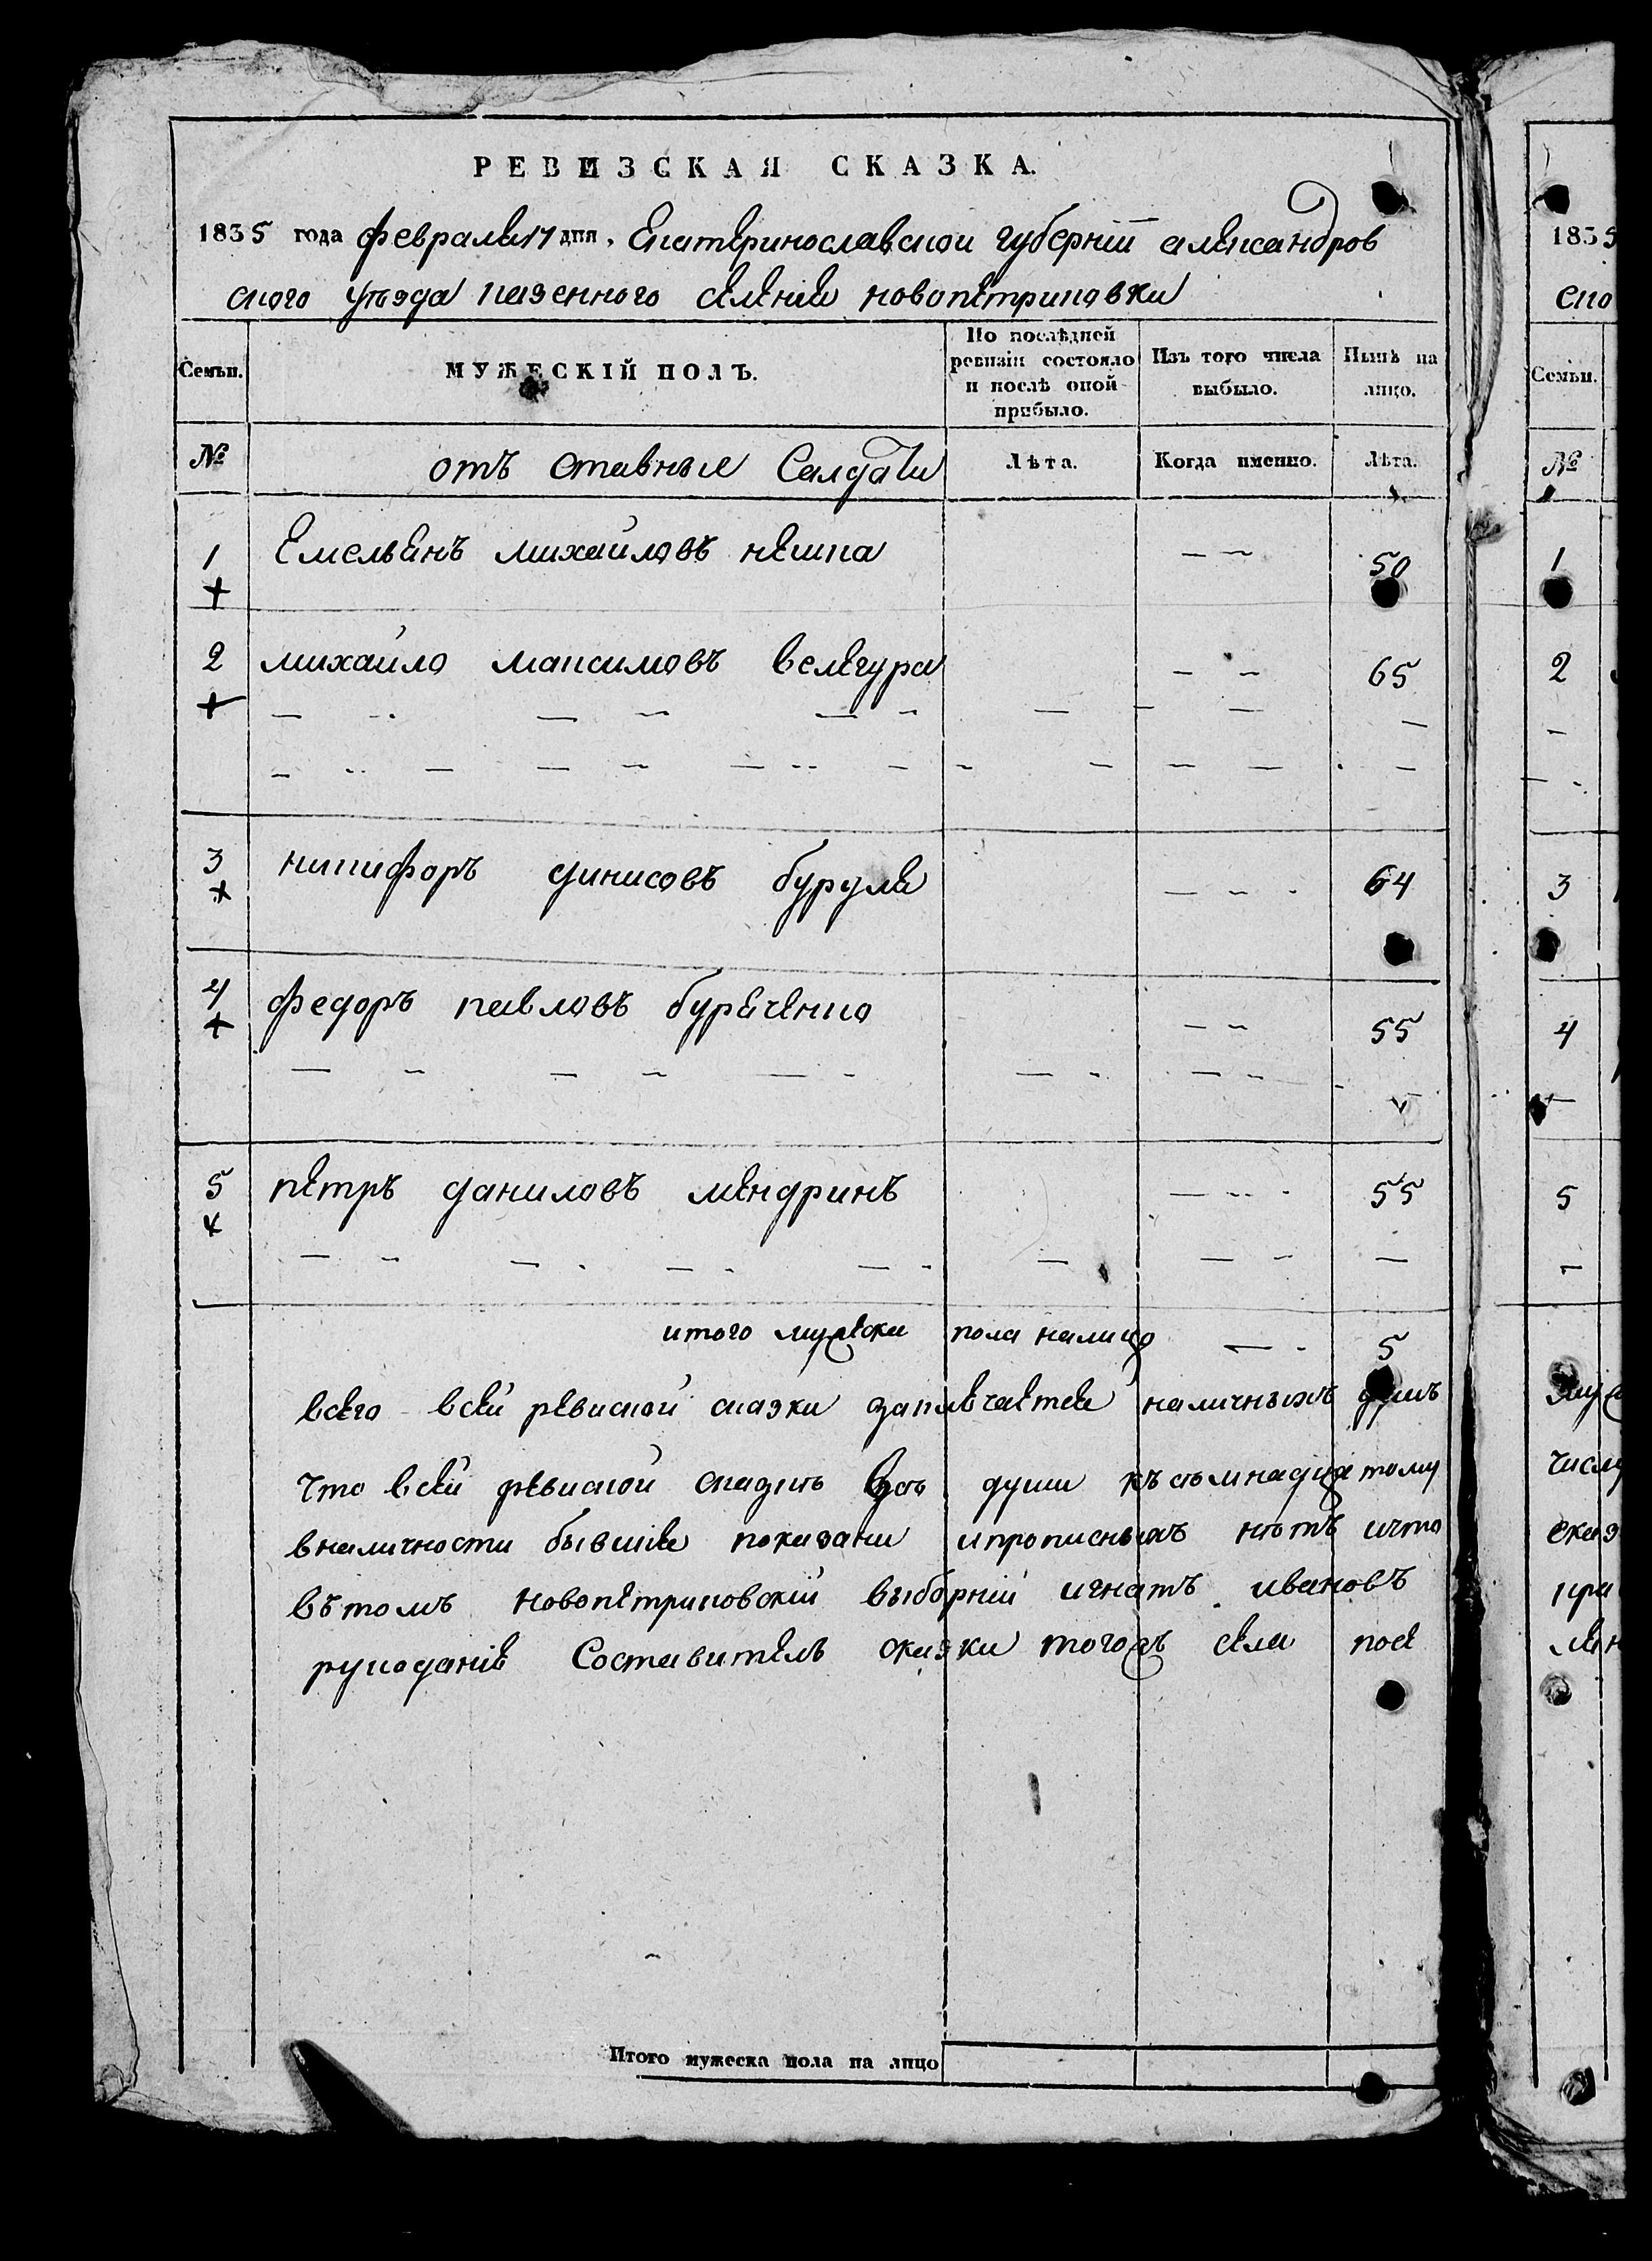 РЕВИЗСКАЯ СКАЗКА.
1835 года февраля 17 дня, Екатеринославской губернїи александров
ского уѣзда казенного селения новопетриковки
Семьи.
МУЖЕСКІЙ ПОЛЪ.
По послѣдней ревизіи состояло и послѣ оной прибыло.
Изъ того числа выбыло.
Нынѣ на лицо.
№
отъ ставные Салдати
Лѣта.
Когда именно.
Лѣта.
1 Емельянъ михайловъ кешка 50
2 михайло максимовъ велегура 65
3 никифоръ динисовъ буруля 64
4 федоръ павловъ буряченко 55
5 петръ даниловъ мендринъ 55
итого мужеска пола налицо 5
всего всей ревиской сказки заключается наличныхъ душъ
Что всей ревиской сказки всѣ души къ сѣмнадцатому
вналичности бывшие показани ипрописныхъ нѣтъ ичто
вътомъ новопетриковский виборний игнатъ ивановъ
рукоданїе Составитель сказки тогожъ села посе
1835
ско
Семьи.
№
1
2
3
4
5
муж
числу
сказ
при
лен
Итого мужеска пола на лицо